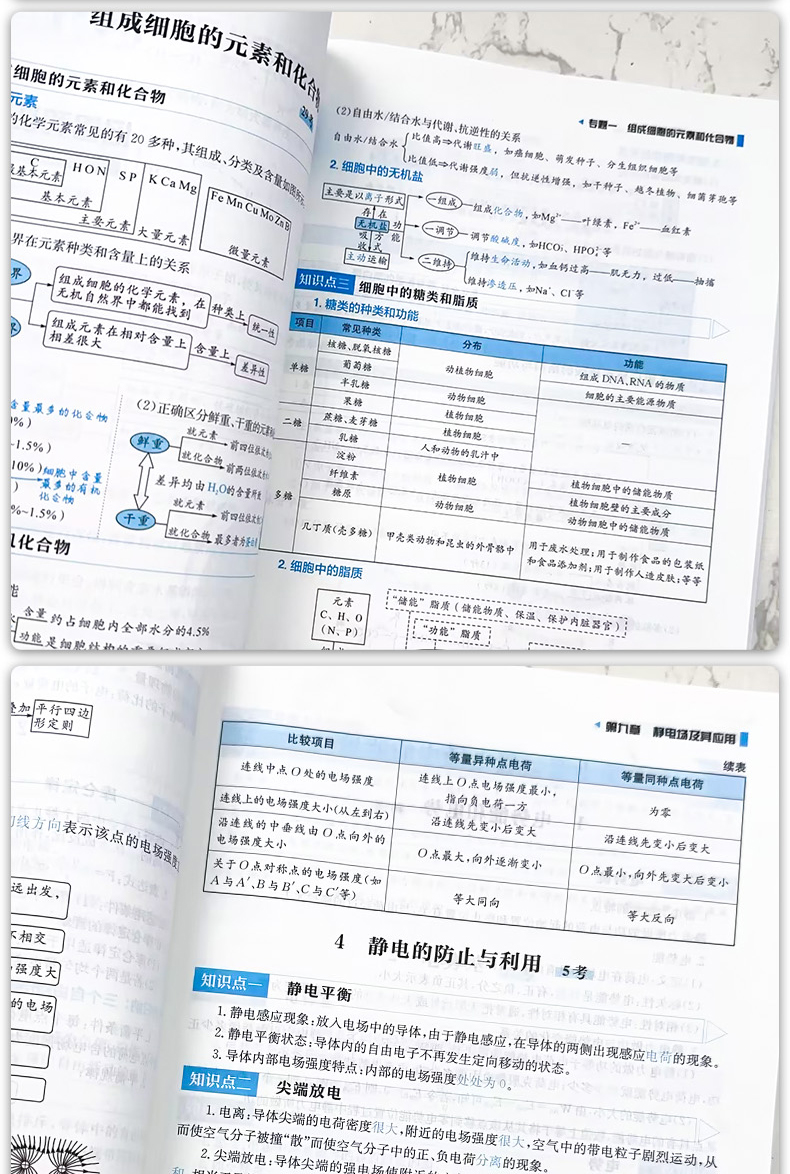 组成细胞的元素和化合物
细胞的元素和化合物
元素
的化学元素常见的有20多种,其组成、分类及含量如图所示
C
基本元素
H O N
基本元素
S P
主要元素
K Ca Mg
大量元素
Fe Mn Cu Mo Zn B
微量元素
界在元素种类和含量上的关系
界
组成细胞的化学元素,在
无机自然界中都能找到
种类上
统一性
组成元素在相对含量上
相差很大
含量上
差异性
含量最多的化合物
~1.5%)
10%)
细胞中含量
最多的有机
化合物
%~1.5%)
(2)正确区分鲜重、干重的元素
鲜重
就元素
前四位依次
就化合物
前两位依次
差异均由H₂O的含量所
干重
就元素
前四位依次
就化合物
最多者为蛋白
化合物
含量
约占细胞内全部水分的4.5%
功能
是细胞结构的重要组成
专题一 组成细胞的元素和化合物
(2)自由水/结合水与代谢、抗逆性的关系
自由水/结合水
比值高⇒代谢旺盛,如癌细胞、萌发种子、分生组织细胞等
比值低⇒代谢强度弱,但抗逆性增强,如干种子、越冬植物、细菌芽孢等
2. 细胞中的无机盐
主要是以离子形式
存在
无机盐
功能
吸收方式
主动运输
一组成
组成化合物,如Mg²⁺——叶绿素,Fe²⁺——血红素
一调节
调节酸碱度,如HCO₃⁻、HPO₄²⁻等
二维持
维持生命活动,如血钙过高——肌无力,过低——抽搐
维持渗透压,如Na⁺、Cl⁻等
知识点三 细胞中的糖类和脂质
1. 糖类的种类和功能
项目 常见种类 分布 功能
单糖 核糖、脱氧核糖 动植物细胞 组成DNA、RNA的物质
葡萄糖 细胞的主要能源物质
半乳糖 动物细胞 —
果糖 植物细胞
二糖 蔗糖、麦芽糖 植物细胞
乳糖 人和动物的乳汁中
多糖 淀粉 植物细胞 植物细胞中的储能物质
纤维素 植物细胞壁的主要成分
糖原 动物细胞 动物细胞中的储能物质
几丁质(壳多糖) 甲壳类动物和昆虫的外骨骼中 用于废水处理;用于制作食品的包装纸
和食品添加剂;用于制作人造皮肤;等等
2. 细胞中的脂质
元素
C、H、O
(N、P)
“储能”脂质(储能物质、保温、保护内脏器官)
“功能”脂质
叠加
平行四边
形定则
切线方向表示该点的电场强度
远出发,
不相交
强度大
的电场
第九章 静电场及其应用
续表
比较项目 等量异种点电荷 等量同种点电荷
连线中点O处的电场强度 连线上O点电场强度最小,
指向负电荷一方 为零
连线上的电场强度大小(从左到右) 沿连线先变小后变大 沿连线先变小后变大
沿连线的中垂线由O点向外的
电场强度大小 O点最大,向外逐渐变小 O点最小,向外先变大后变小
关于O点对称点的电场强度(如
A与A′、B与B′、C与C′等) 等大同向 等大反向
4 静电的防止与利用 5考
知识点一 静电平衡
1. 静电感应现象:放入电场中的导体,由于静电感应,在导体的两侧出现感应电荷的现象。
2. 静电平衡状态:导体内的自由电子不再发生定向移动的状态。
3. 导体内部电场强度特点:内部的电场强度处处为0。
知识点二 尖端放电
1. 电离:导体尖端的电荷密度很大,附近的电场强度很大,空气中的带电粒子剧烈运动,从
而使空气分子被撞“散”而使空气分子中的正、负电荷分离的现象。
2. 尖端放电:导体尖端的强电场使附近的